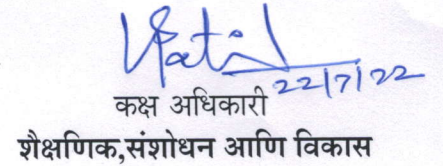 22/7/22
कक्ष अधिकारी
शैक्षणिक,संशोधन आणि विकास